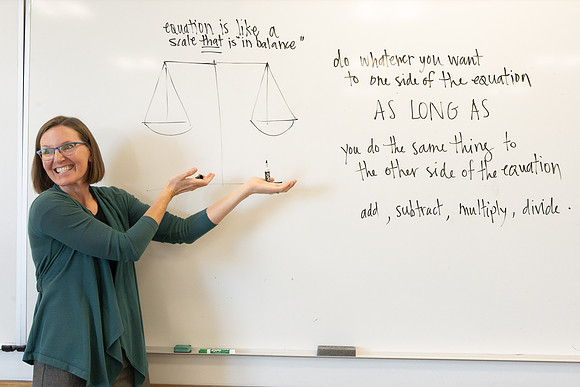 equation is like a
scale that is in balance"
do whatever you want
to one side of the equation
AS LONG AS
you do the same thing to
the other side of the equation
add, subtract, multiply, divide.